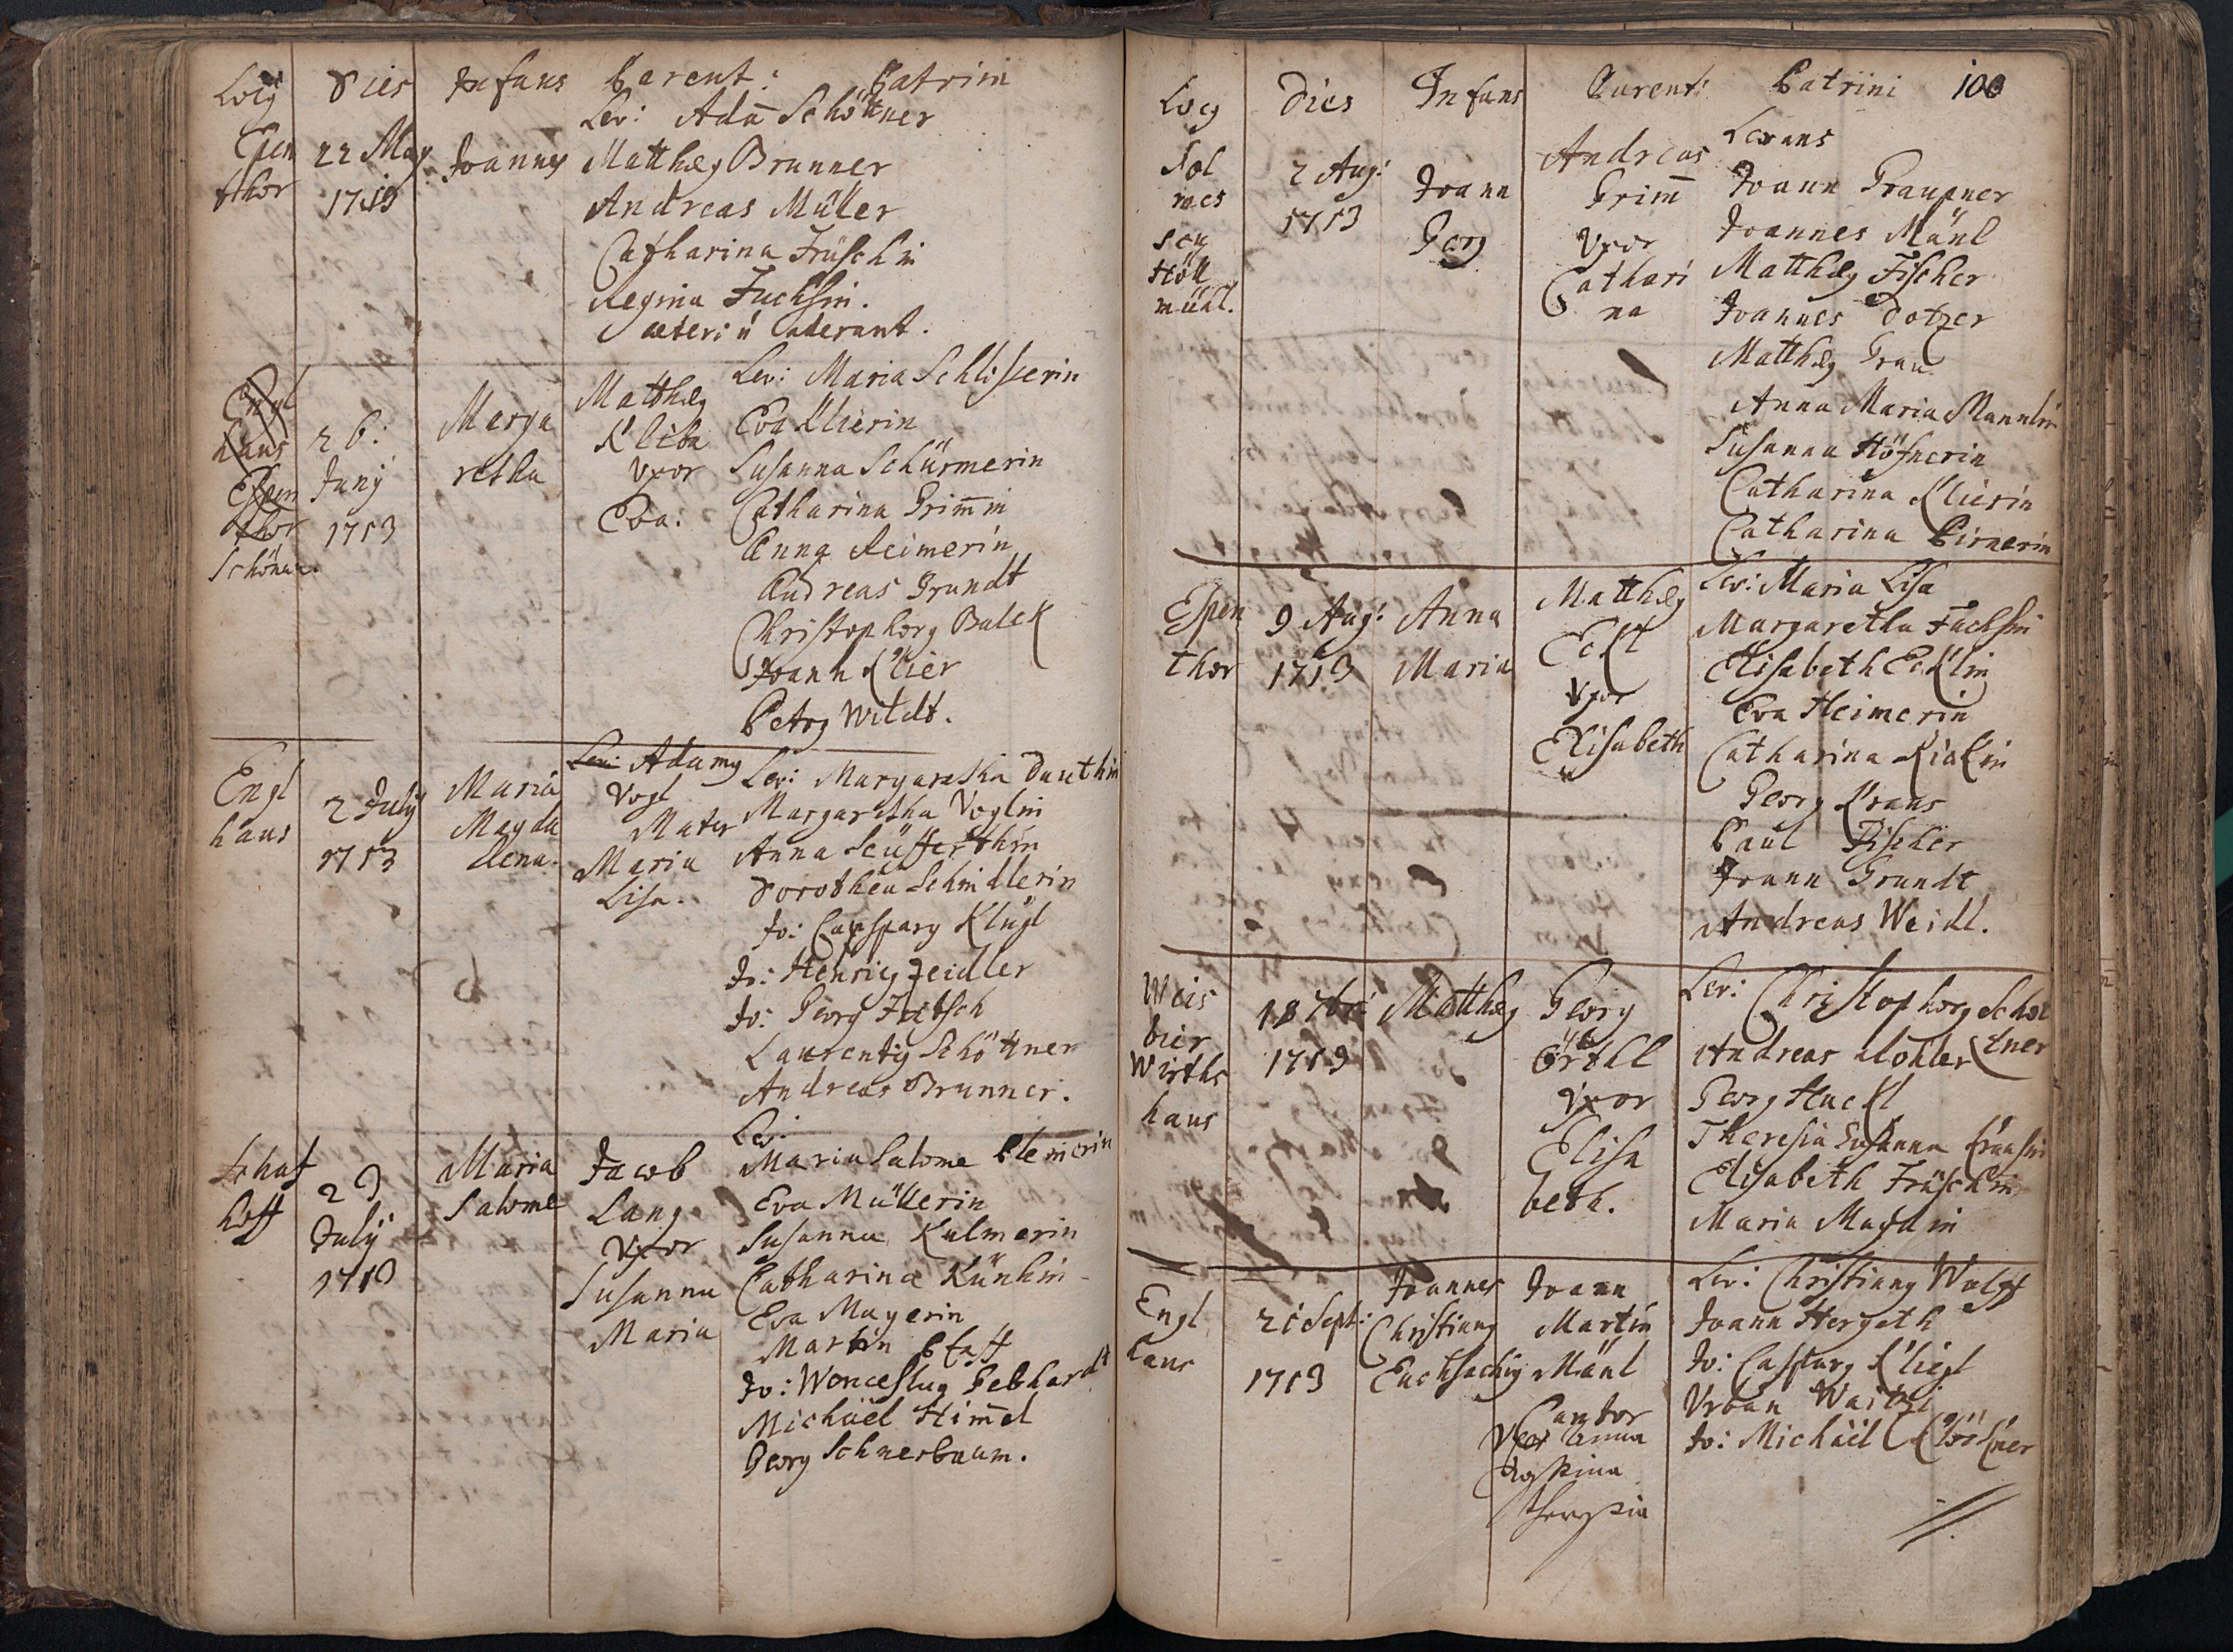 Locg Dies Infans Parent: Patrini
Lev: Adam Schöttner
Espen 22 May Joannes Matthæg Brunner
thor 1713 Andreas Müller
Catharina Früschin
Regina Fuchsin.
Cæteri ú aderant.
Engl
haus
Espen
thor
Schöna
26:
Juny
1713
Marga
retha
Matthæg
Klier
Vxor
Eva:
Lev: Maria Schlisserin
Eva Klierin
Susanna Schürmerin
Catharina Grim̄in
Anna Reimerin
Andreas Grundt
Christophorg Balek
Joann Klier
Petrg Wildt.
Engl
haus
2 July
1713
Maria
Magda
lena.
Lev: Adamg
Vogl
Mater
Maria
Lisa.
Lev: Margaretha Dauthin
Margaretha Voglin
Anna Seüfferthin
Dorothea Schindlerin
Jo: Casparg Klügl
Jo: Henricg Zeidler
Jo: Georg Fritsch
Laurentig Schöttner
Andreas Brunner.
Schaf
hoff
29
July
1713
Maria
Salome
Jacob
Lang
Vxor
Susanna
Maria
Lev:
Maria Salome Cleinerin
Eva Müllerin
Susanna Kulmerin
Catharina Künhin
Eva Mayerin
Martin Pfaff
Jo: Wenceslug Gebhardt
Michäel Him̄el
Georg Schnerbaum.
Locg Dies Infans Parent: Patrini 100
Sol
mes
sey
Höll
mühl.
2 Aug:
1713
Joann
Georg
Andreas
Grim̄
Vxor
Cathari
na
Levans
Joann Graupner
Joannes Mänl
Matthæg Fischer
Joannes Dotzer
Matthæg Grau
Anna Maria Mannlin
Susanna Höfnerin
Catharina Klierin
Catharina Pirnerin
Espen
thor
9 Aug:
1713
Anna
Maria
Matthæg
Eckl
Vxor
Elisabeth
Lev: Maria Lisa
Margaretha Fuchsin
Elisabeth Ecklin
Eva Heimerin
Catharina Ricklin
Georg Kraus
Paul Fischer
Joann Grundt
Andreas Weidl.
Weis
bier
Wirths
haus
18 7bri
1713
Matthæg
Georg
Örthl
Vxor
Elisa
beth.
Lev: Christophorg Schöt
tner
Andreas Kohler
Georg Huckl
Theresia Susanna Krausin
Elisabeth Früschin
Maria Magdin
Engl
haus
21 Sept:
1713
Joannes
Christiang
Eustachig
Joann
Martin
Mänl
Cantor
Vxor Anna
Rosina
Theresia
Lev: Christiang Wolff
Joann Hergeth
Jo: Casparg Kliegl
Vrban Waitzi
Jo: Michäel Klöckner